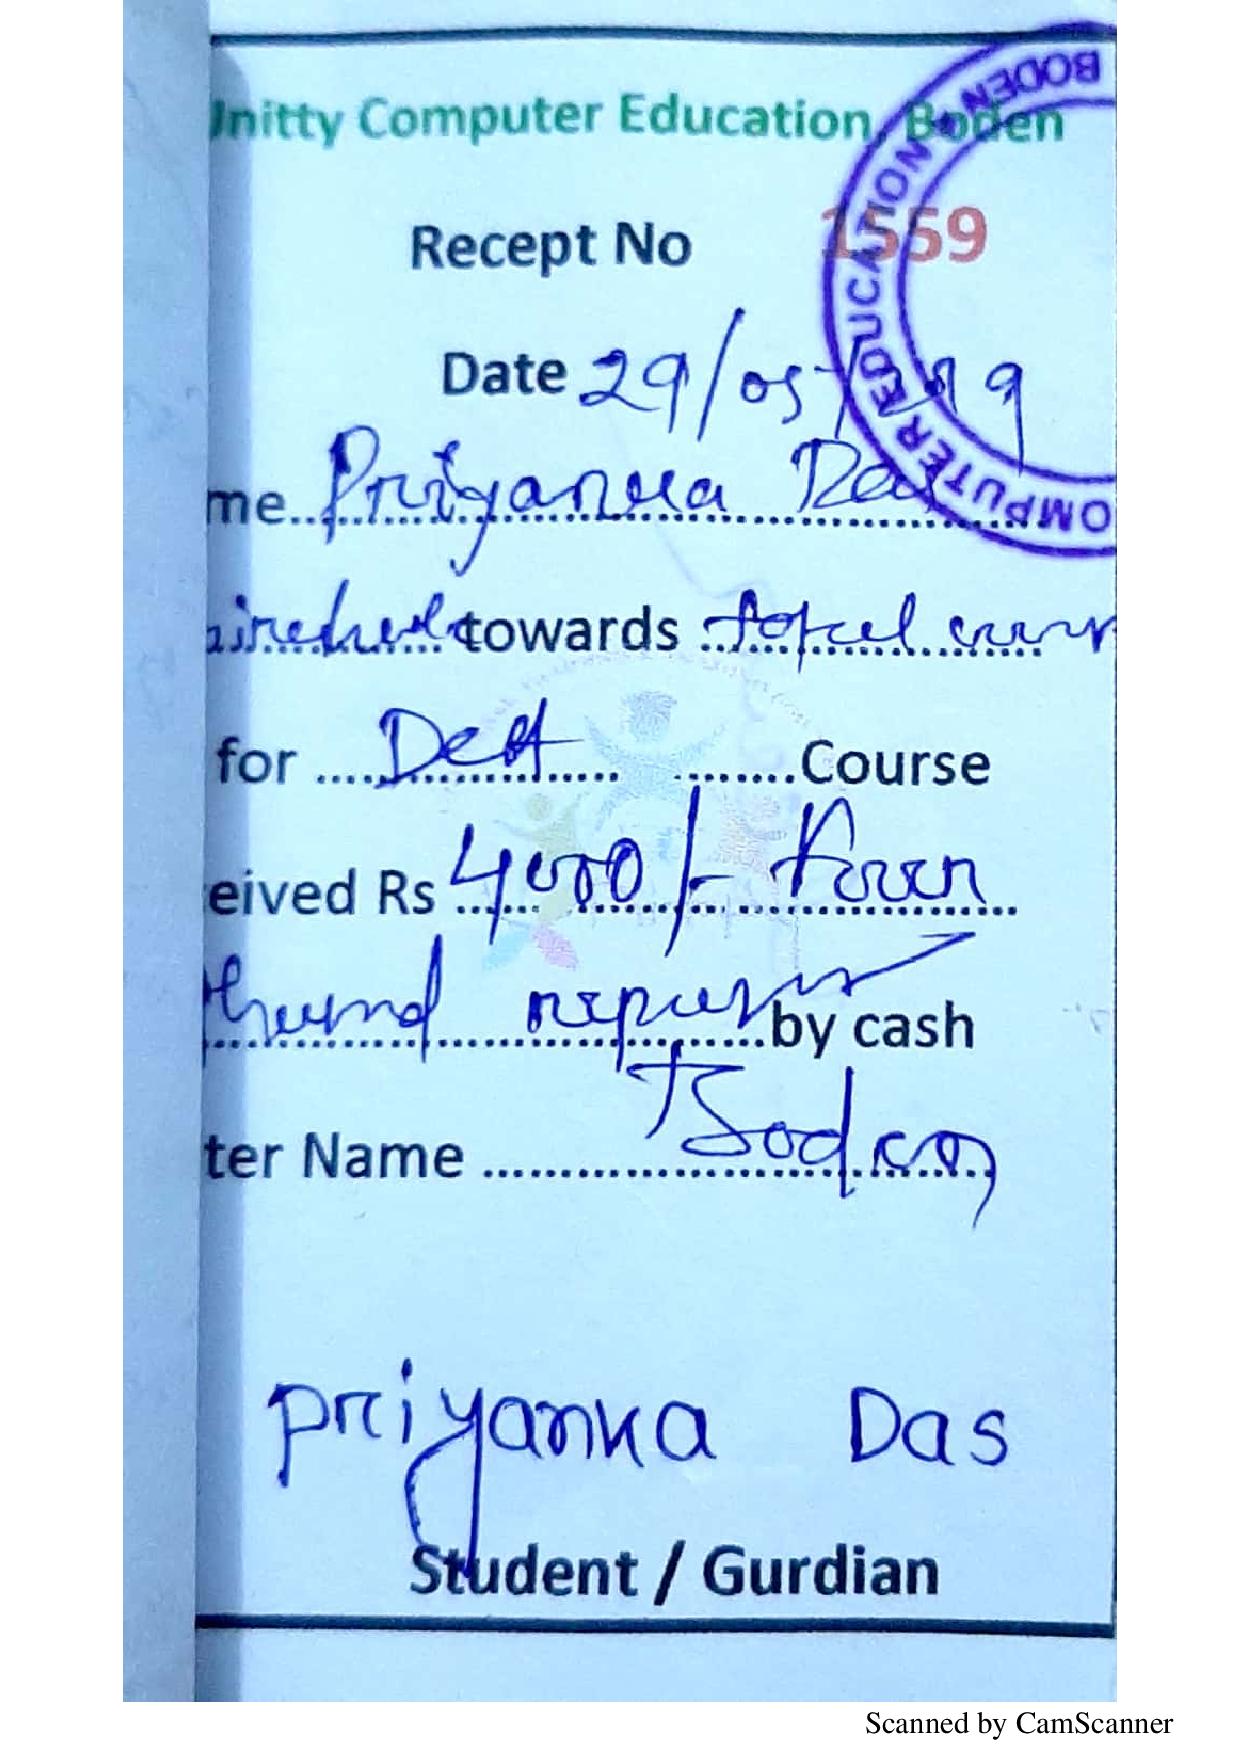 Unitty Computer Education, Boden
Recept No 1559
Date 29/05/19
me Priyanka Das
towards total
for Course
eived Rs 4000/- Four
thousand rupees by cash
ter Name Boden
Priyanka Das
Student / Gurdian
COMPUTER EDUCATION * BODEN
Scanned by CamScanner